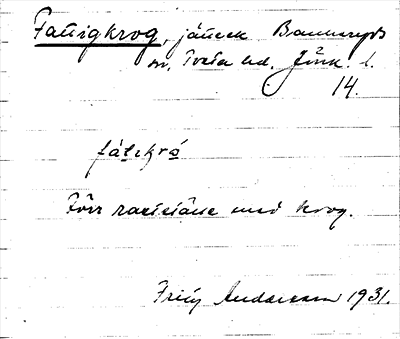 Fattigkrog, jämte Bannaryds
sn, Tveta hd. Jönk. l.
14.
fátikró
Förr rastställe med krog.
Fritz Andersson 1931.